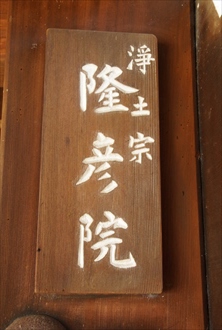 淨土宗
隆彦院